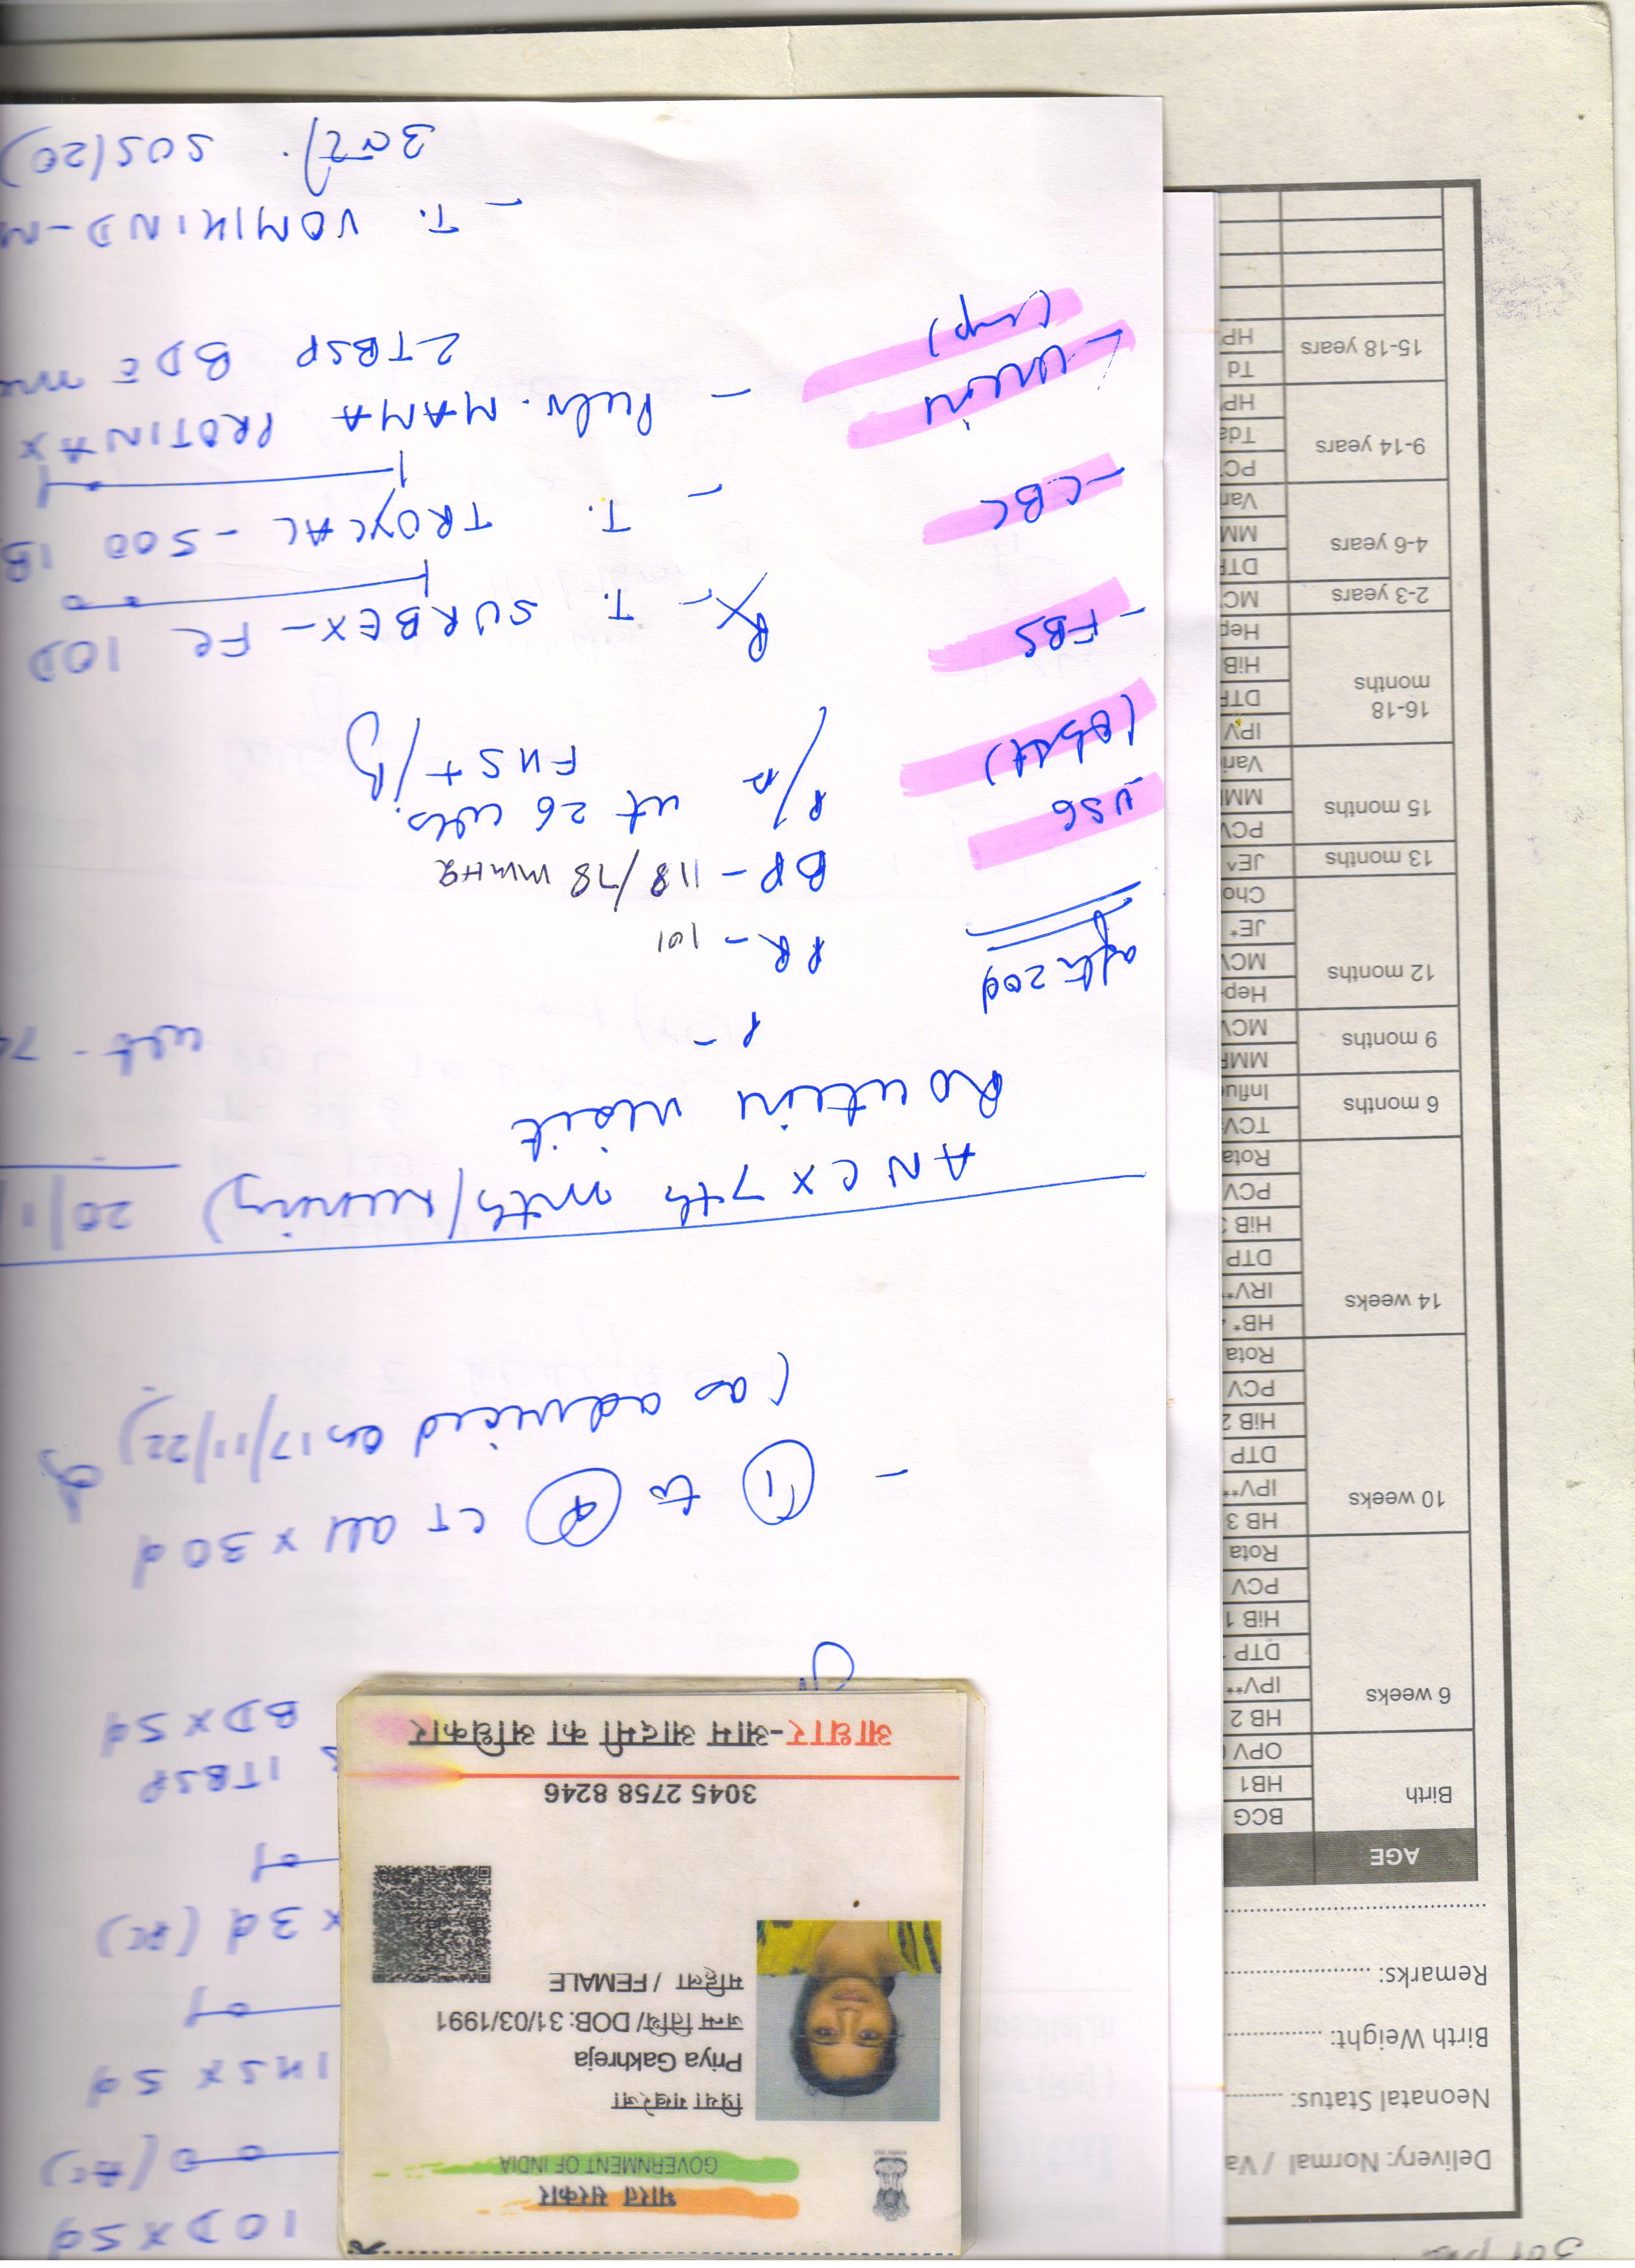 Delivery: Normal / Va
Neonatal Status:
Birth Weight:
Remarks:
AGE
Birth
BCG
HB1
OPV
6 weeks
HB 2
IPV**
DTP
HiB 1
PCV
Rota
10 weeks
HB 3
IPV**
DTP
HiB 2
PCV
Rota
14 weeks
HB*
IRV**
DTP
HiB 3
PCV
Rota
6 months
TCV
Influ
9 months
MMR
MCV
12 months
Hep
MCV
JE*
Cho
13 months
JE^
15 months
PCV
MM
Vari
16-18 months
IPV
DTP
HiB
Hep
2-3 years
MC
4-6 years
DTP
MM
Var
9-14 years
PC
Tda
HPV
15-18 years
Td
HPV
भारत सरकार
GOVERNMENT OF INDIA
प्रिया गखरेजा
Priya Gakhreja
जन्म तिथि / DOB: 31/03/1991
महिला / FEMALE
3045 2758 8246
आधार-आम आदमी का अधिकार
1OD x 5d
(AC)
1HS x 5d
x 3d (PC)
1TBSP
BD x 5d
- ① to ④ CT all x 30d
(as advised on 17/11/22)
ANC x 7th mths (running) 20/1
Routine visit
P - wt - 7
after 20d
PR - 101
BP - 118/78 mmHg
USG
(Obst)
P/A ut 26 wks.
FHS +
- FBS
Rx - T. SURBEX - Fe 1OD
- CBC
- T. TROYCAL - 500 1B
- Urine
(Imp)
- Pulv. MAMA PROTINAX
2TBSP BD c̄
- T. VOMIKIND - M
SOS (20)